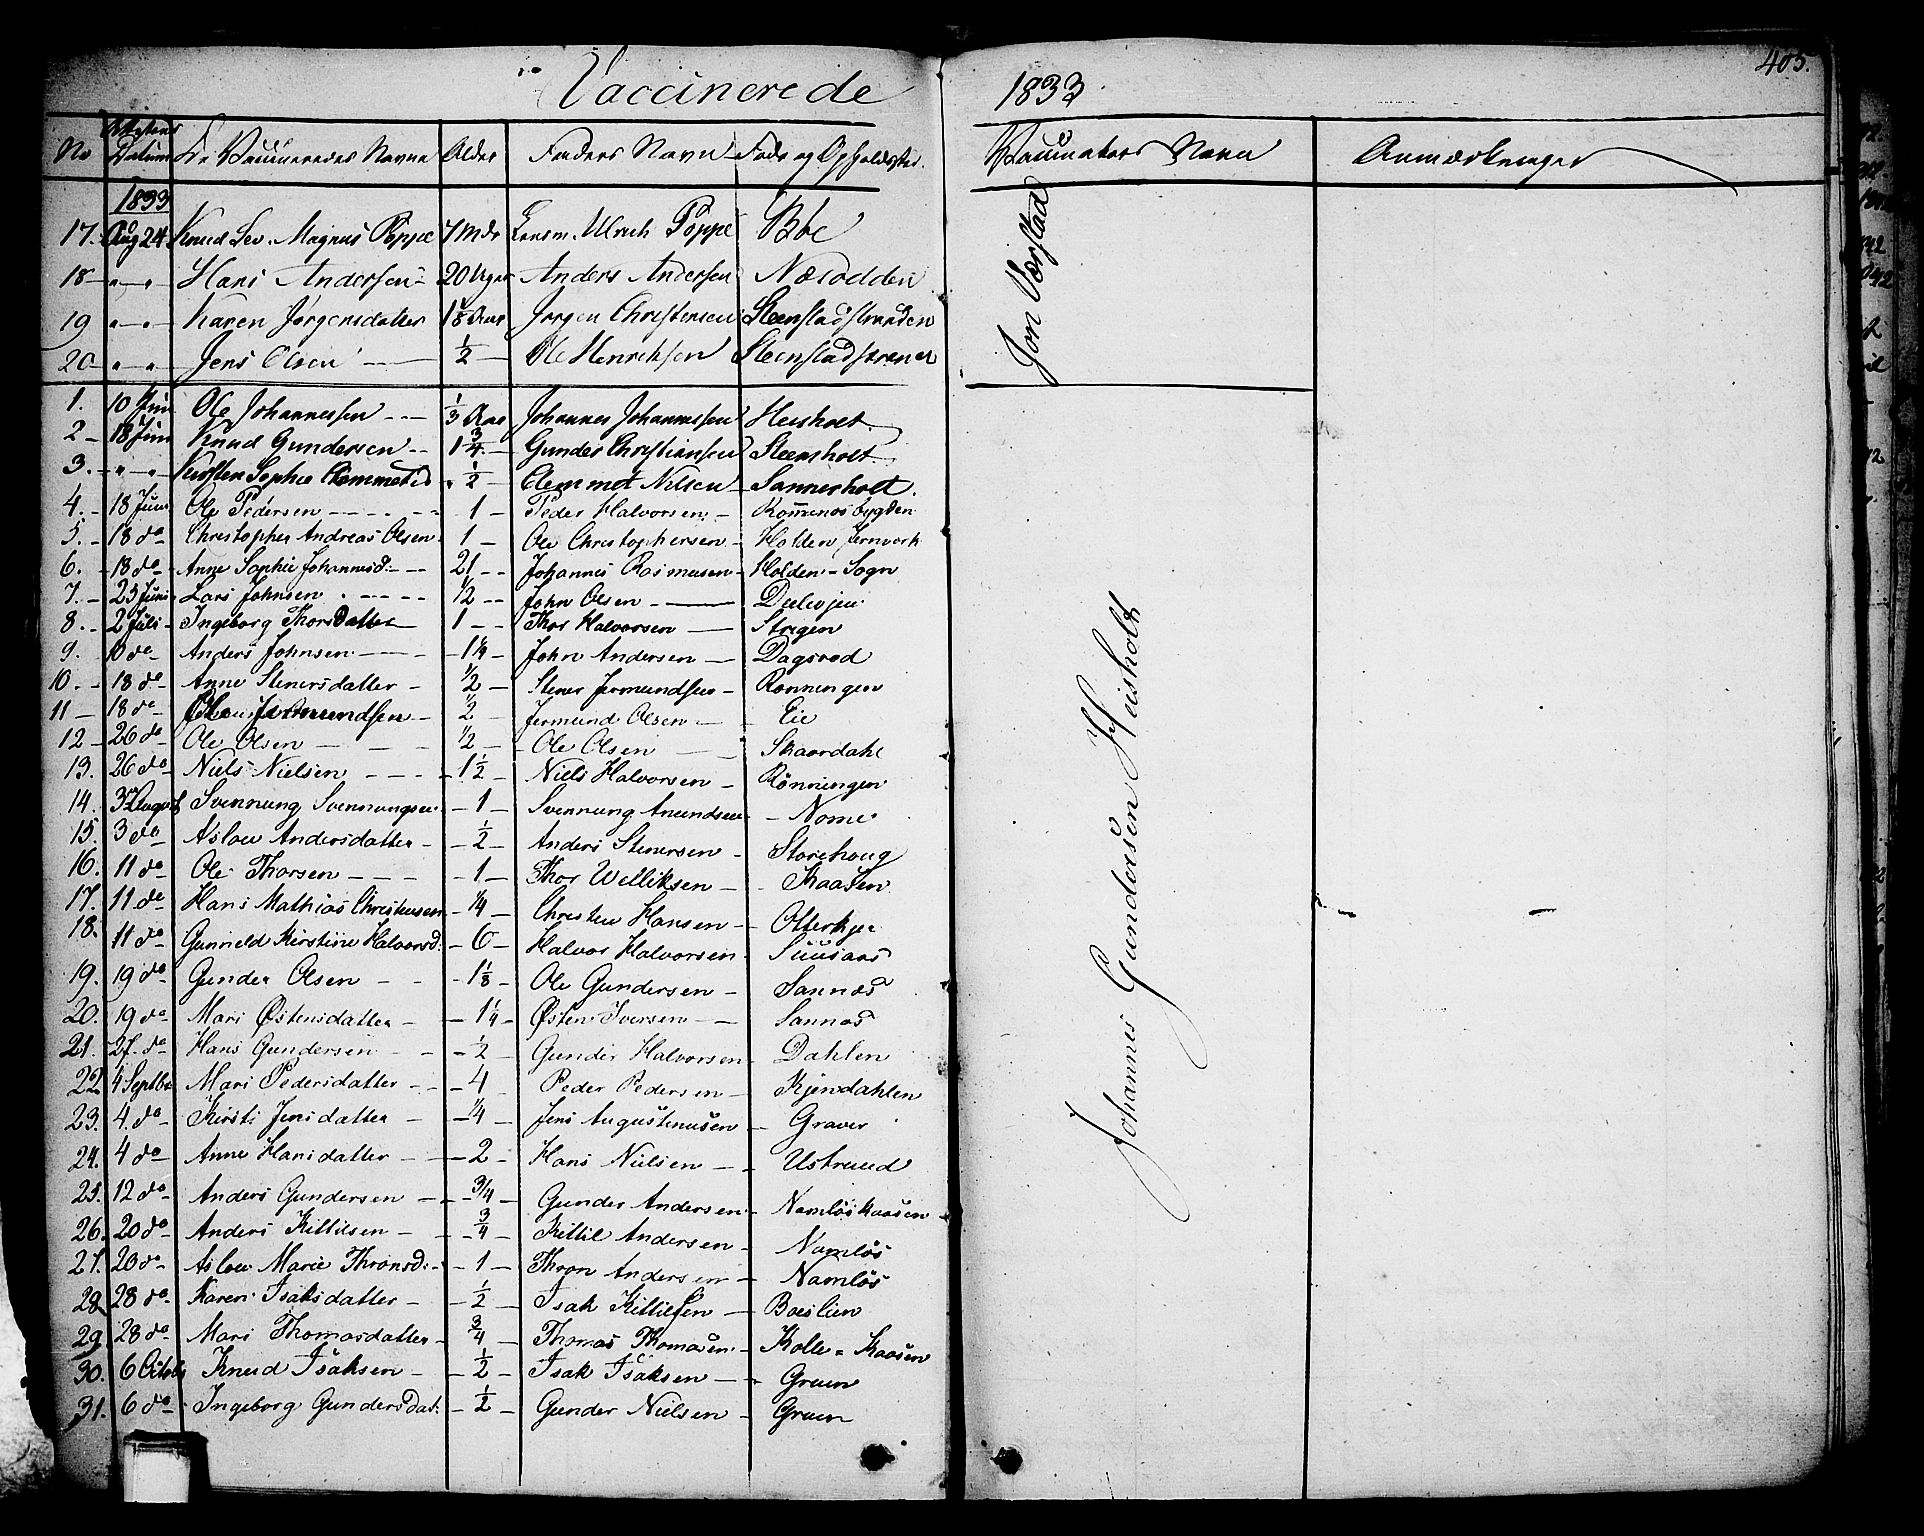 Vaccinerede 1833
405.
No Attestens Datum De Vaccineredes Navne Alder Faders Navn Føde og Opholdssted. Vaccinateurs Navn Anmærkninger
1833
17. Aug 24 Knud Lev. Magnus Poppe 7 Mdr Lensm. Ulrich Poppe Böe
18 — " — " — Hans Andersen 20 Uger Anders Andersen Næsodden
19 " — " — Karen Jörgensdatter 1 1/8 Aar Jörgen Christensen Steenstadstranden
20 — " — " — Jens Olsen — 1/2 — Ole Henriksen Steenstadstranen
Jon Værstad
1. 10 Juni Ole Johannessen - - 1/3 Aar Johannes Johannessen Heisholt
2 — 18 Juni Knud Gundersen - - 1 3/4 - Gunder Christiansen Steensholt
3. - " — " — Kirsten Sophie Clemmetsd " 1/2 - Clemmet Nilsen — Sannerholt.
4. - 18 Juni Ole Pedersen - - - - 1 — Peder Halvorsen - Kom̅enesbygden
5. - 18 do Christopher Andreas Olsen 1 — Ole Christophersen - Holden Jernverk
6. - 18 do - Anne Sophie Johannesd: - - 21 - - Johannes Rasmusen - Holden - Sogn
7. - 25 Juni Lars Johnsen - - - - 1/2 - - John Olsen — Deelevjen
8. - 2 Juli - Ingeborg Thorsdatter 1 - - Thor Halvorsen — Strigen
9. 10 do - Anders Johnsen - - - 1 1/4 - John Andersen — Dagsrod
10. - 18 do - Anne Stenersdatter - 1/2 - Stener Jermundsen - Ronningen
11 — 18 do Jermundsen - 1/2 — Jermund Olsen — - Eie
12 - 26 do Ole Olsen — — - 1/2 — Ole Olsen — Skaardahl
13. 26 do - Niels Nielsen - - - - 1 1/2 - Niels Halvorsen - Rönningen
14. 3 August Svennung Svennungsen - 1 — Svennung Amundsen - Nome
15. 3 do Aslow Andersdatter - - 1/2 - Anders Stenersen - Storehoug
16. 11 do - Ole Thorsen - - - - 1 — Thor Welliksen — - Kaasen
17. 11 do Hans Mathias Christensen - 1/4 - Christen Hansen - - Otterkjer
18. 11 do Gunneld Kirstine Halvorsd. - 6 — Halvor Halvorsen - Suusaas
19. 19 do - Gunder Olsen - - - 1 1/8 - Ole Gundersen - Sannæs
20. 19 do - Mari Østensdatter - - 1 1/4 - Østen Iversen — Sannæs
21. 27. do Hans Gundersen - - - 1/2 — Gunder Halvorsen - Dahlen
22 4 Septbr Mari Pedersdatter - - - 4 Peder Pedersen - Kjendahlen
23. 4. do - Kirsti Jensdatter - - 1/4 - Jens Augustinusen - Graver
24. 4 do — Anne Hansdatter — - 2 — Hans Nielsen — - Ustrued
25. 12 do - Anders Gundersen — - 3/4 - Gunder Andersen - Namlöskaasen
26. 20 do - Anders Kittilsen - - 3/4 - Kittil Andersen - Namlös
27. 23 do - Aslow Marie Thronsd: - - 1 - Thron Andersen - Namlös
28 28 do - Karen Isaksdatter - - 1/2 - Isak Kittilsen — Baeslien
29. 28 do - Mari Thomasdatter - 3/4 - Thomas Thomasen - Kolle - Kaasen
30. 6 Octobr Knud Isaksen - - 1/2 - Isak Isaksen — - Gruen
31. 6 do - Ingeborg Gundersdat: - 1/2 — Gunder Nielsen - Gruen
Johannes Gundersen Heisholt